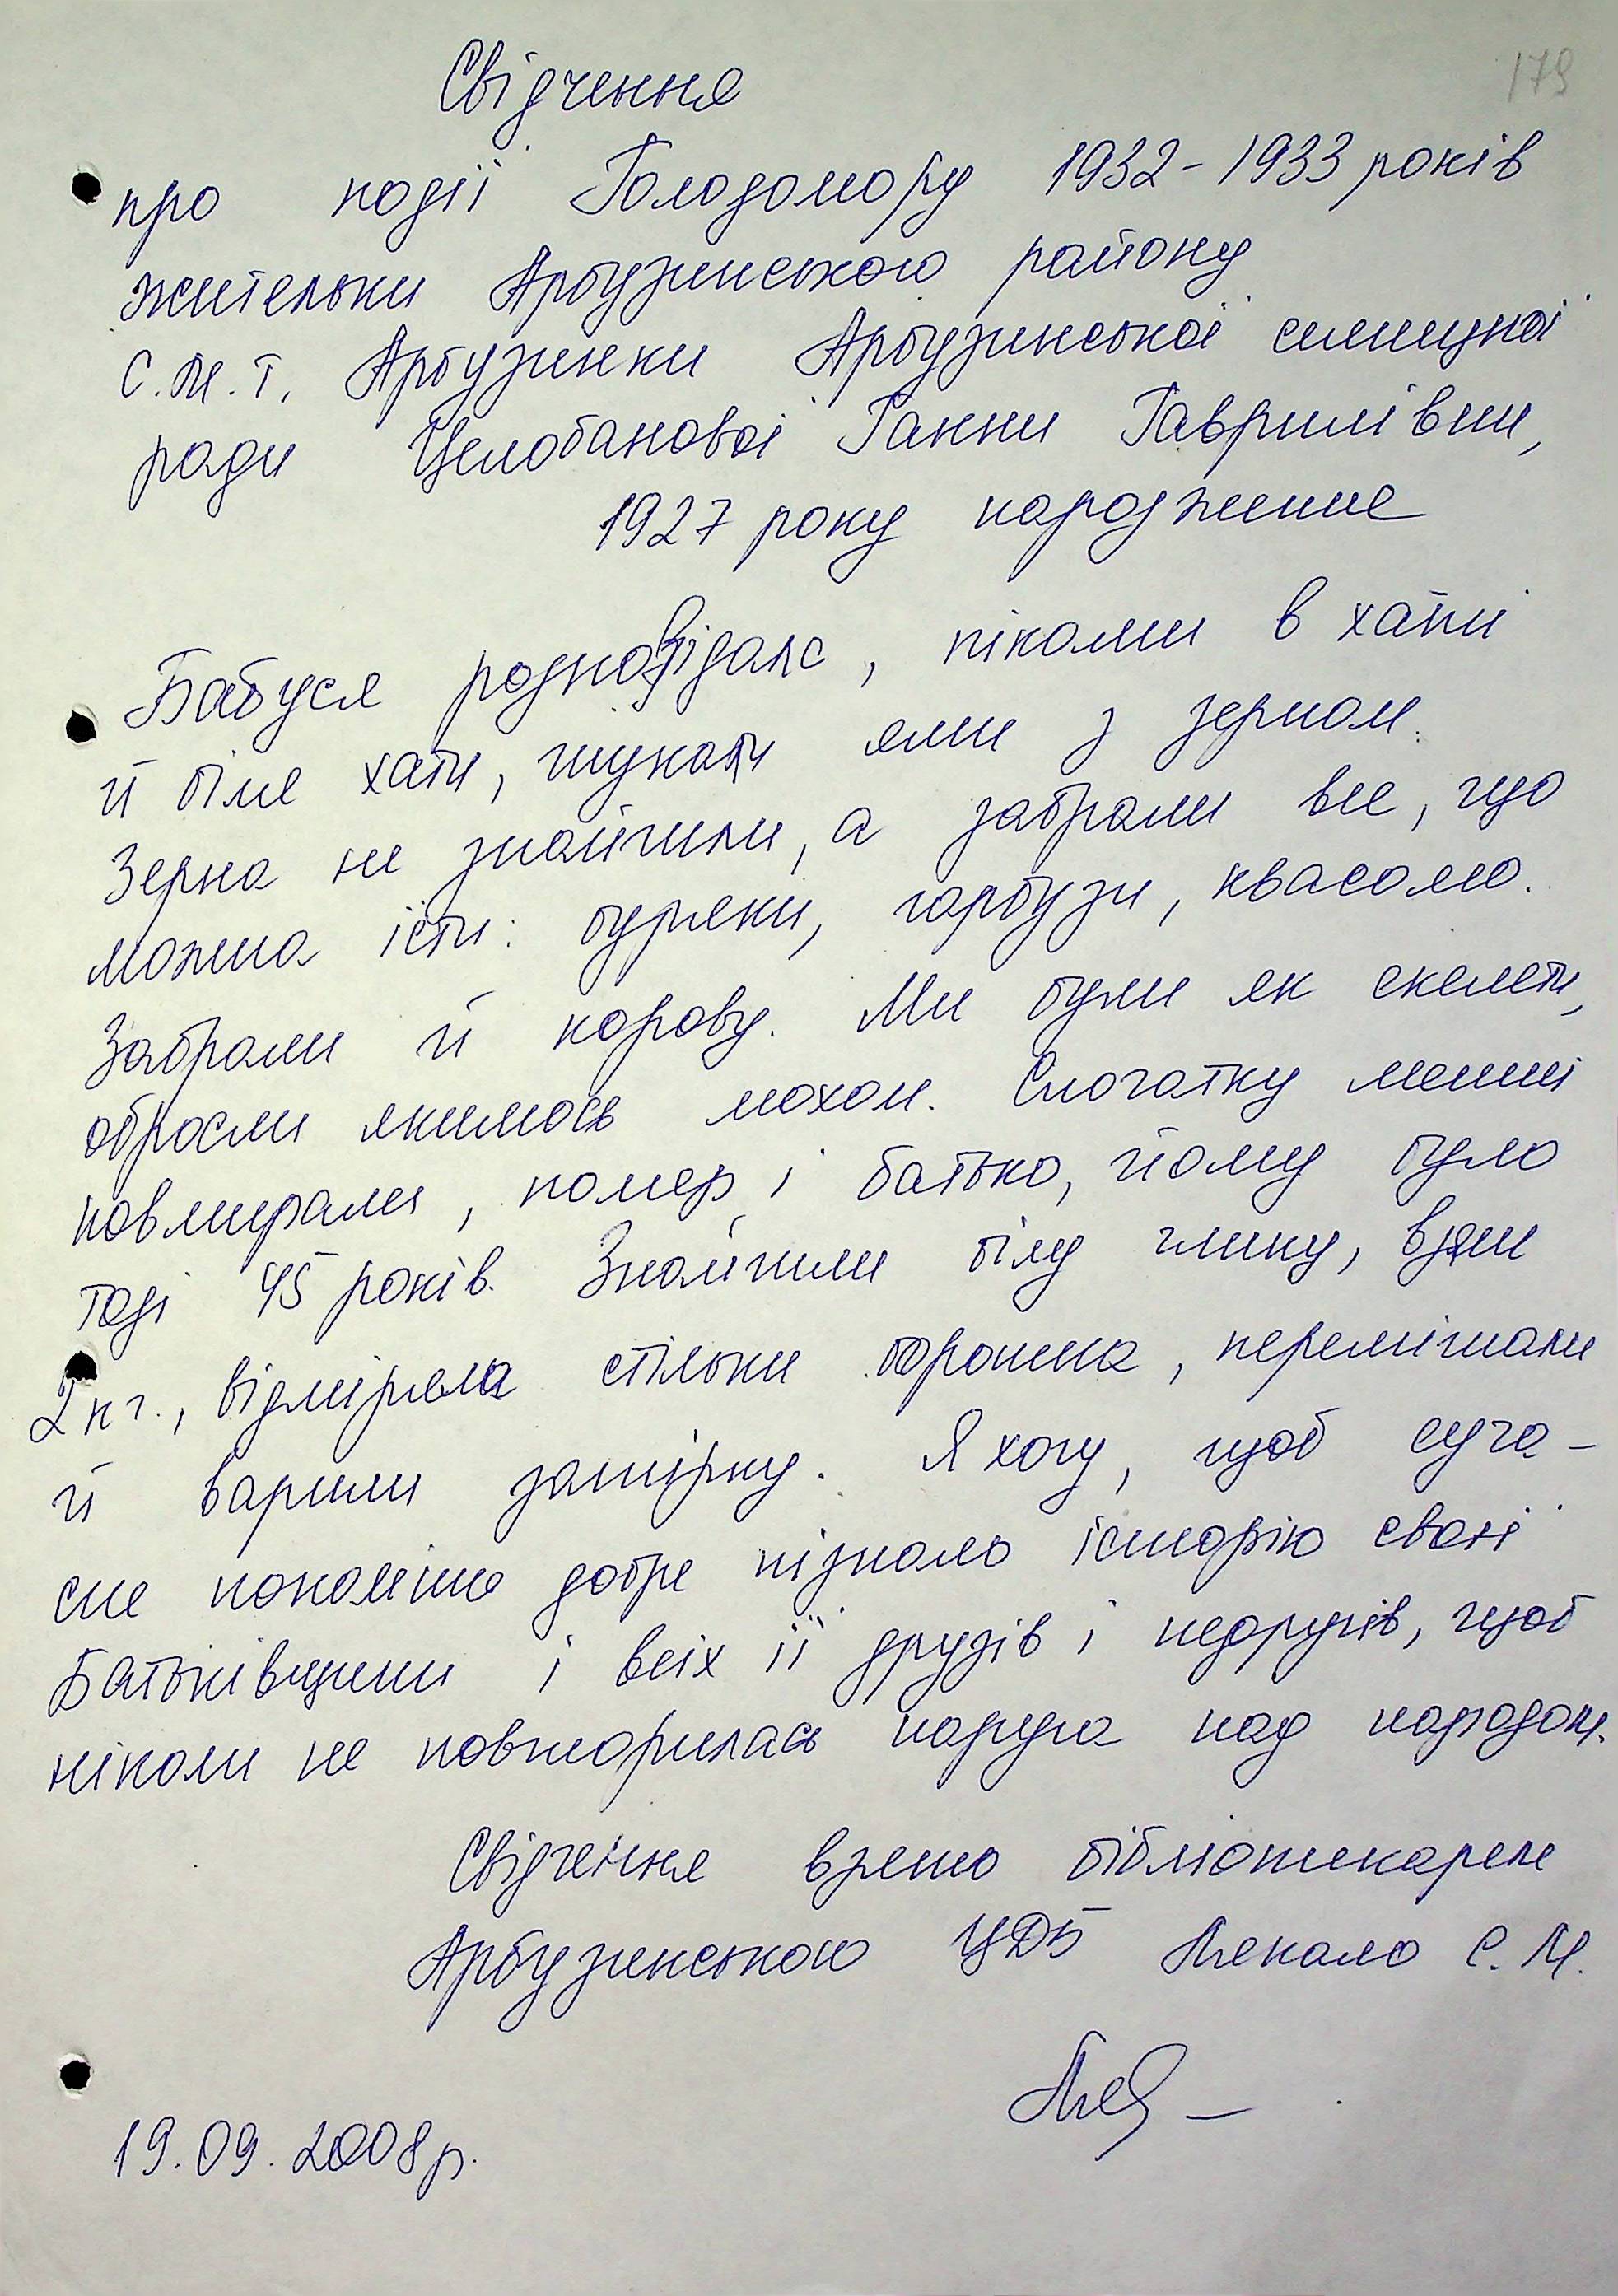 179
Свідчення
про події Голодомору 1932-1933 років
жительки Арбузинського району
с.м.т. Арбузинки Арбузинської селищної
ради Целобанової Ганни Гаврилівни,
1927 року народження
Бабуся розповідала, ніколи в хаті
й біля хати, шукали ями з зерном.
Зерна не знайшли, а забрали все, що
можна їсти: буряки, гарбузи, квасолю.
Забрали й корову. Ми були як скелети,
обросли якимось мохом. Спочатку менші
повмирали, помер і батько, йому було
тоді 45 років. Знайшли білу глину, взяли
2 кг., відміряла стільки борошна, перемішали
й варили затірку. Я хочу, щоб суча-
сне покоління добре пізнало історію своєї
Батьківщини і всіх її друзів і недругів, щоб
ніколи не повторилась наруга над народом.
Свідчення взято бібліотекарем
Арбузинською ЦДБ С.М.
19.09.2008р.